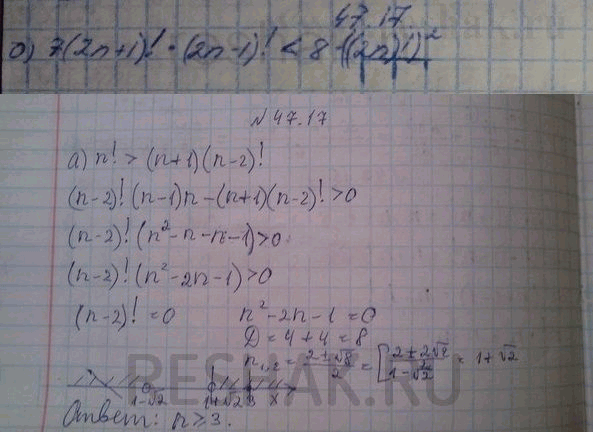 47.17
а) 7(2n+1)! · (2n-1)! < 8 · ((2n)!)²
№47.17
а) n! > (n+1)(n-2)!
(n-2)! (n-1)n - (n+1)(n-2)! > 0
(n-2)! (n² - n - n - 1) > 0
(n-2)! (n² - 2n - 1) > 0
(n-2)! = 0 n² - 2n - 1 = 0
D = 4 + 4 = 8
n₁,₂ = (2±√8)/2 = [(2±2√2)/2 = 1+√2
1-√2
RESHAK.RU
1-√2 1+√2 3 x
Ответ: n ≥ 3.